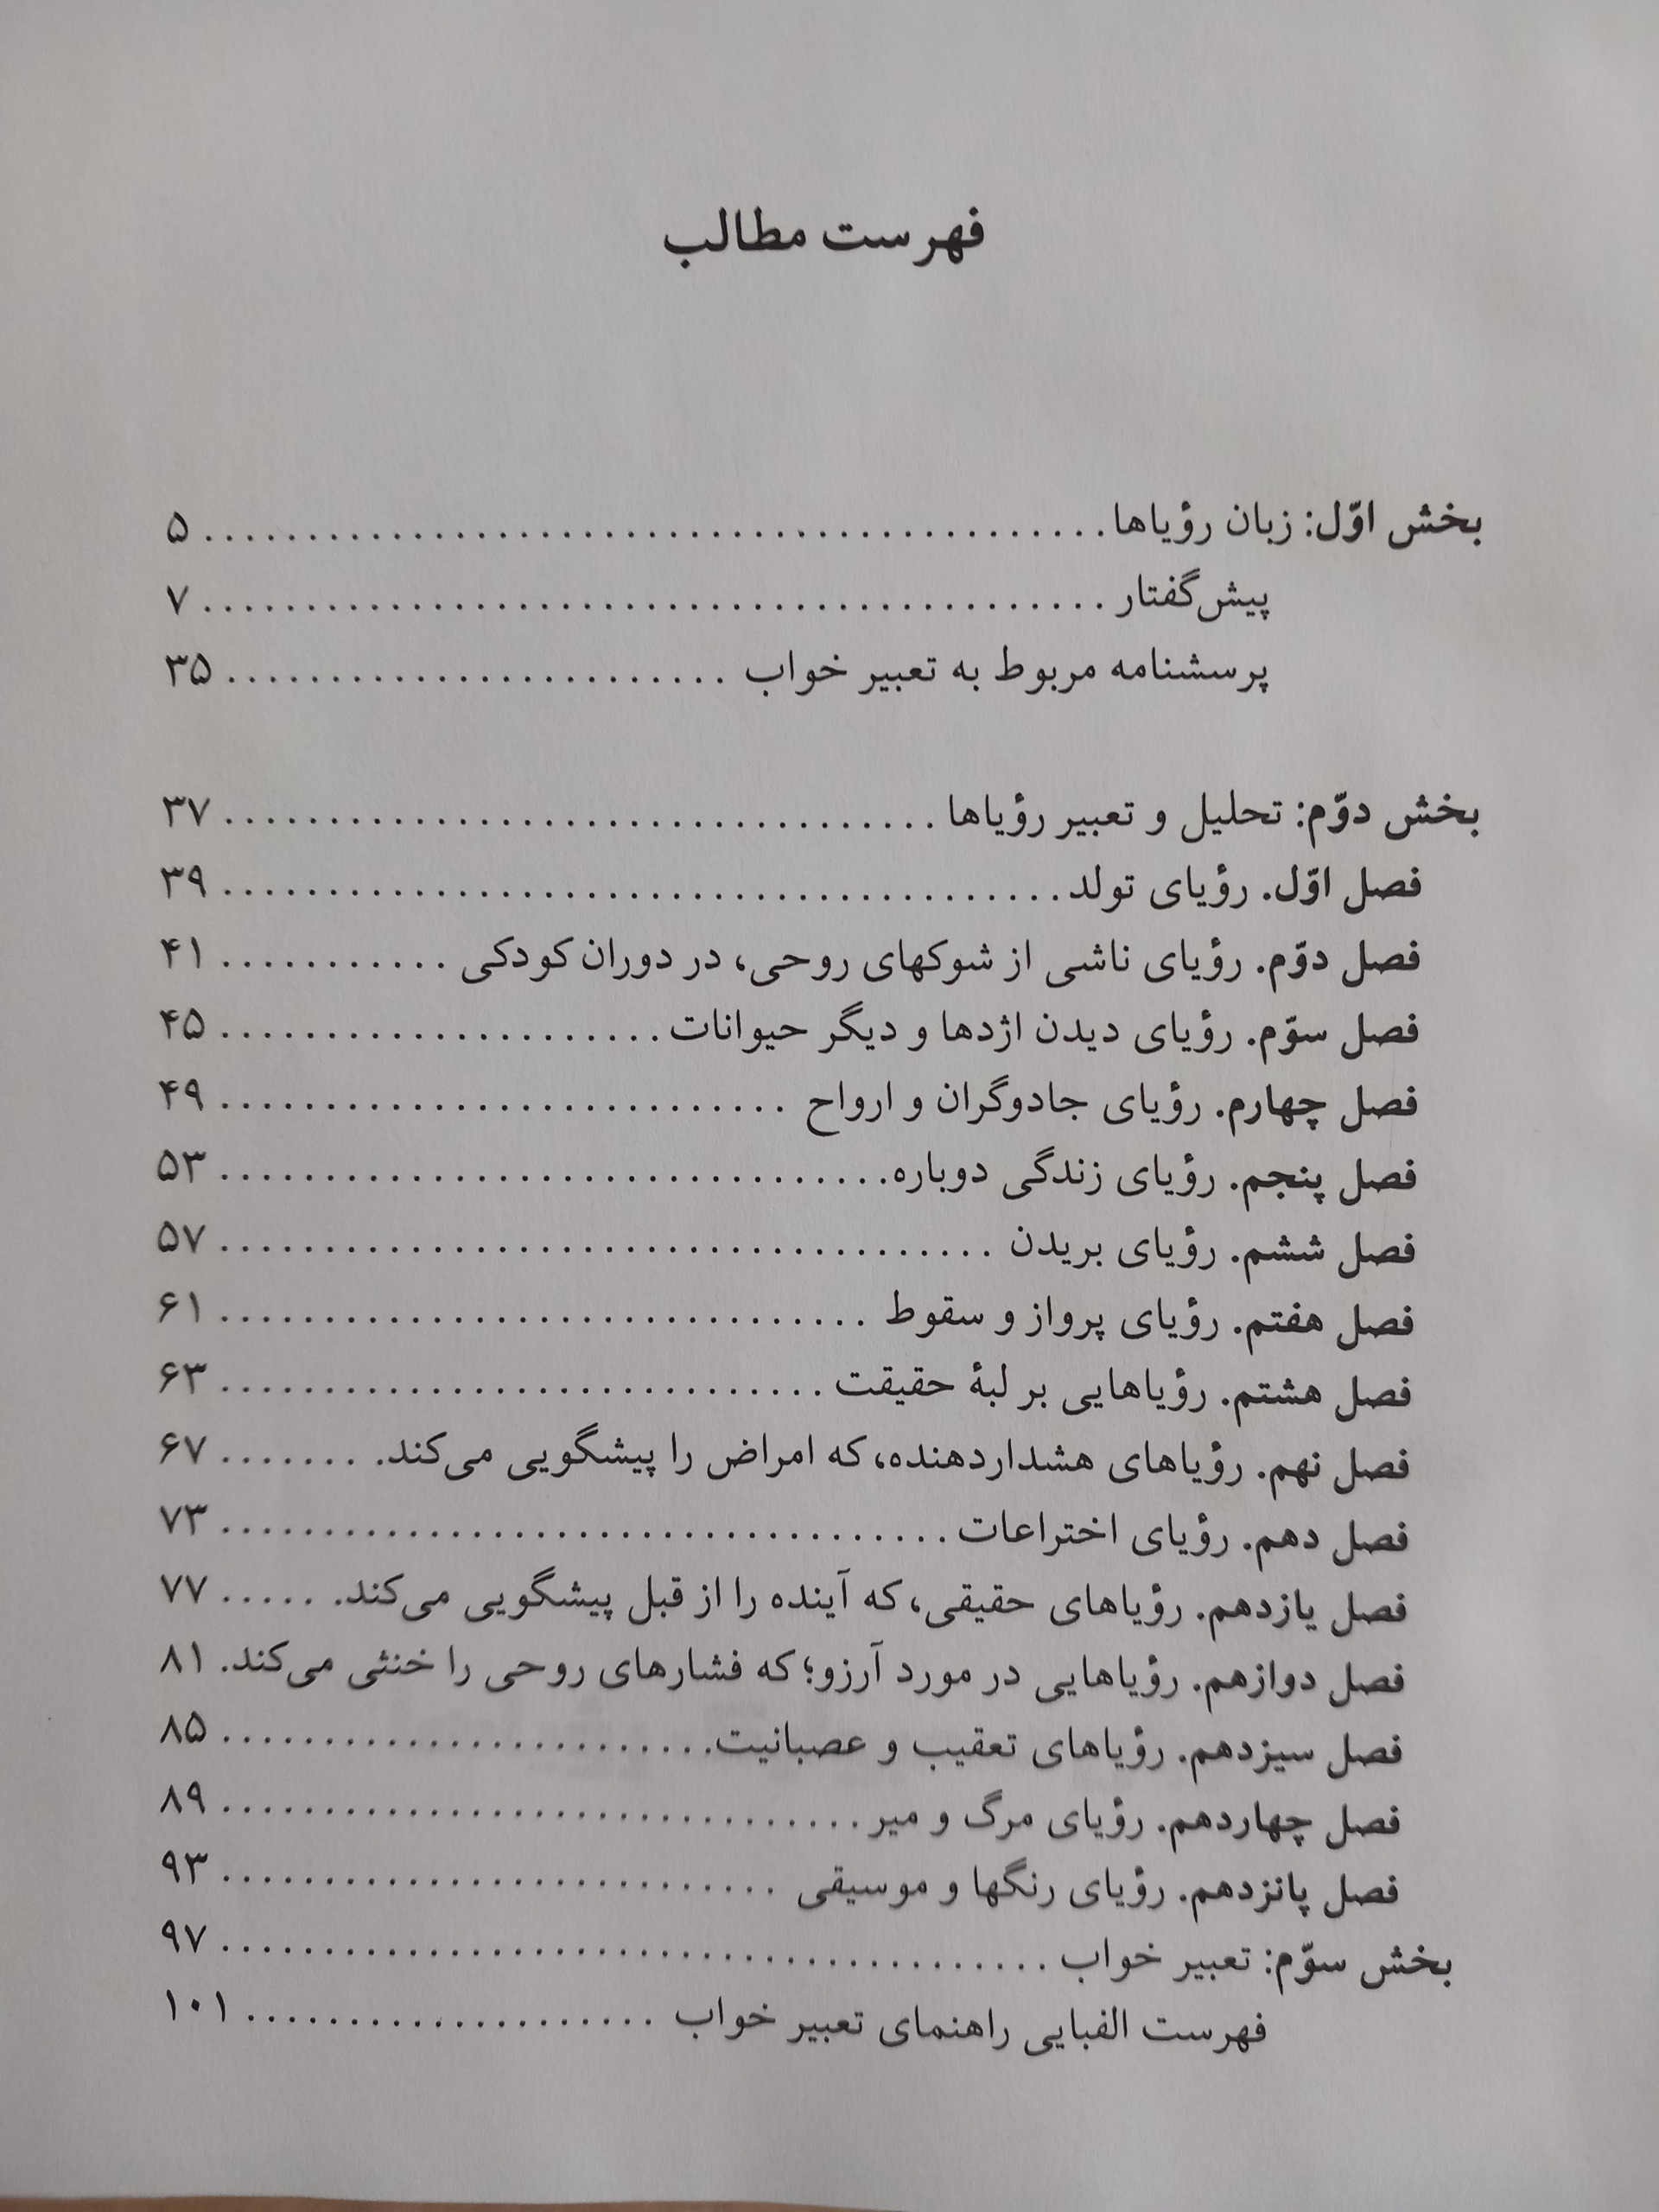 فهرست مطالب
بخش اوّل: زبان رؤیاها . . . . . . . . . . . . . . . . . . . . ۵
پیش‌گفتار . . . . . . . . . . . . . . . . . . . . ۷
پرسشنامه مربوط به تعبیر خواب . . . . . . . . . . . . . . . . . . . . ۳۵
بخش دوّم: تحلیل و تعبیر رؤیاها . . . . . . . . . . . . . . . . . . . . ۳۷
فصل اوّل. رؤیای تولد . . . . . . . . . . . . . . . . . . . . ۳۹
فصل دوّم. رؤیای ناشی از شوکهای روحی، در دوران کودکی . . . . . . . . . . . ۴۱
فصل سوّم. رؤیای دیدن اژدها و دیگر حیوانات . . . . . . . . . . . . . . . . . . . . ۴۵
فصل چهارم. رؤیای جادوگران و ارواح . . . . . . . . . . . . . . . . . . . . ۴۹
فصل پنجم. رؤیای زندگی دوباره . . . . . . . . . . . . . . . . . . . . ۵۳
فصل ششم. رؤیای بریدن . . . . . . . . . . . . . . . . . . . . ۵۷
فصل هفتم. رؤیای پرواز و سقوط . . . . . . . . . . . . . . . . . . . . ۶۱
فصل هشتم. رؤیاهایی بر لبهٔ حقیقت . . . . . . . . . . . . . . . . . . . . ۶۳
فصل نهم. رؤیاهای هشداردهنده، که امراض را پیشگویی می‌کند. . . . . . . . ۶۷
فصل دهم. رؤیای اختراعات . . . . . . . . . . . . . . . . . . . . ۷۳
فصل یازدهم. رؤیاهای حقیقی، که آینده را از قبل پیشگویی می‌کند. . . . . . . ۷۷
فصل دوازهم. رؤیاهایی در مورد آرزو؛ که فشارهای روحی را خنثی می‌کند. ۸۱
فصل سیزدهم. رؤیاهای تعقیب و عصبانیت . . . . . . . . . . . . . . . . . . . . ۸۵
فصل چهاردهم. رؤیای مرگ و میر . . . . . . . . . . . . . . . . . . . . ۸۹
فصل پانزدهم. رؤیای رنگها و موسیقی . . . . . . . . . . . . . . . . . . . . ۹۳
بخش سوّم: تعبیر خواب . . . . . . . . . . . . . . . . . . . . ۹۷
فهرست الفبایی راهنمای تعبیر خواب . . . . . . . . . . . . . . . . . . . . ۱۰۱